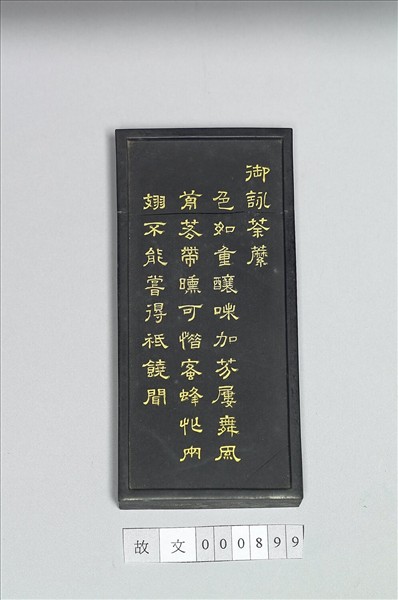 御詠荼蘼
色如重釀味加芬屢舞風
前若帶曛可惜蜜蜂忙兩
翅不能嘗得祗饒聞
故文000899